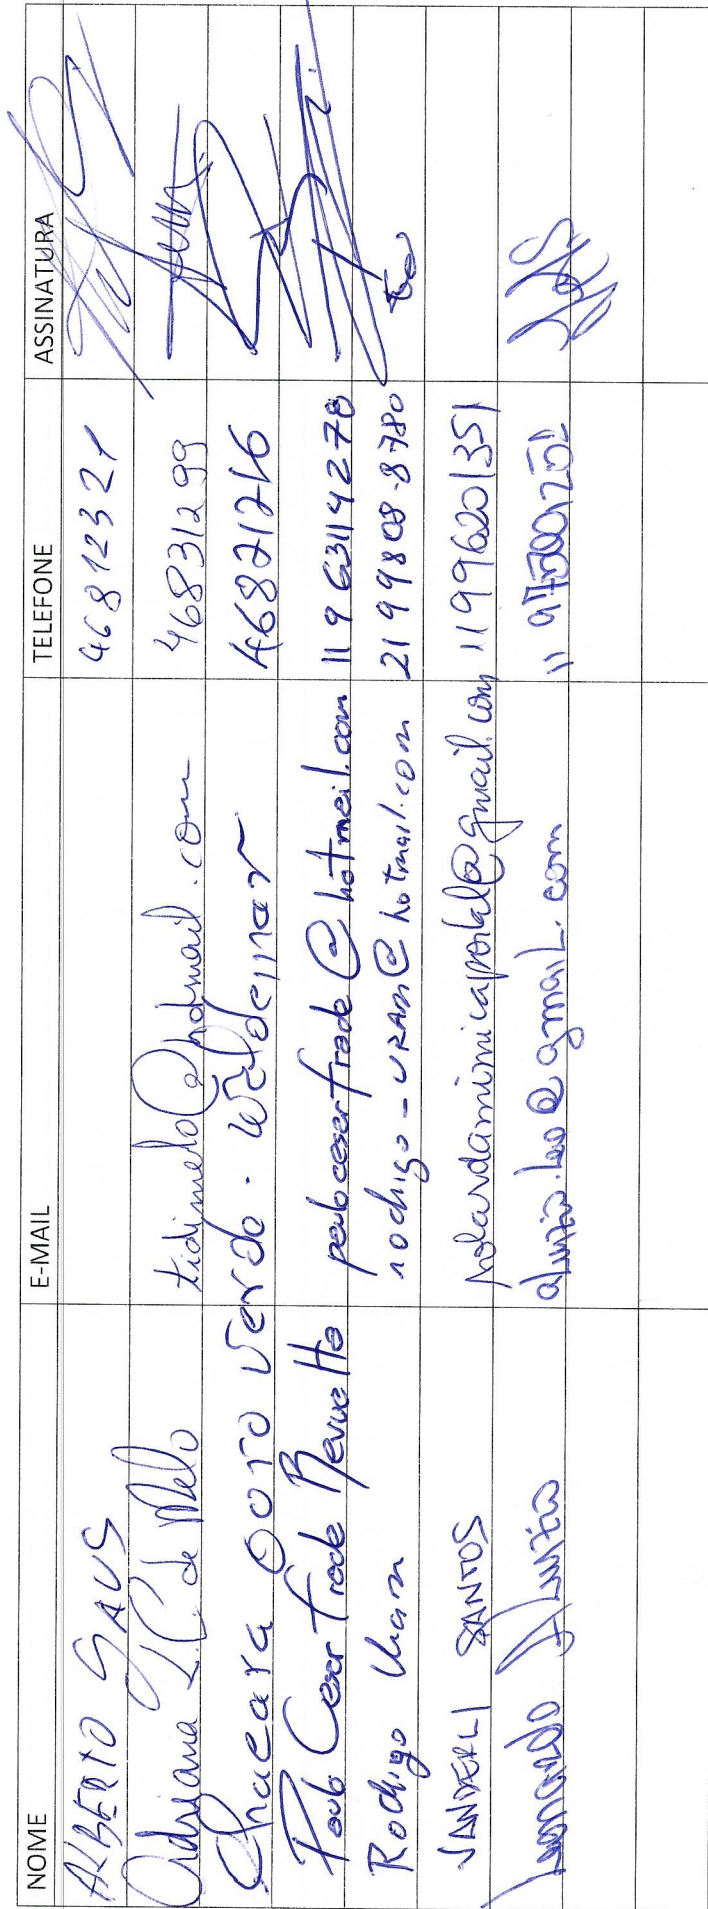 NOME E-MAIL TELEFONE ASSINATURA
ALBERTO 46812321
Adriana L C de Melo tidimelo@hotmail.com 46831299
Chacara Ooro Verde - Waldemar 46821216
Paulo Cesar Frade Revuelta paulocesarfrade@hotmail.com 11963114278
Rodrigo Uram rodrigo-URAM@hotmail.com 21 99808-8780
VANDERLI SANTOS @gmail.com 11996201351
Leonardo Aluizio aluizio.leo@gmail.com 11